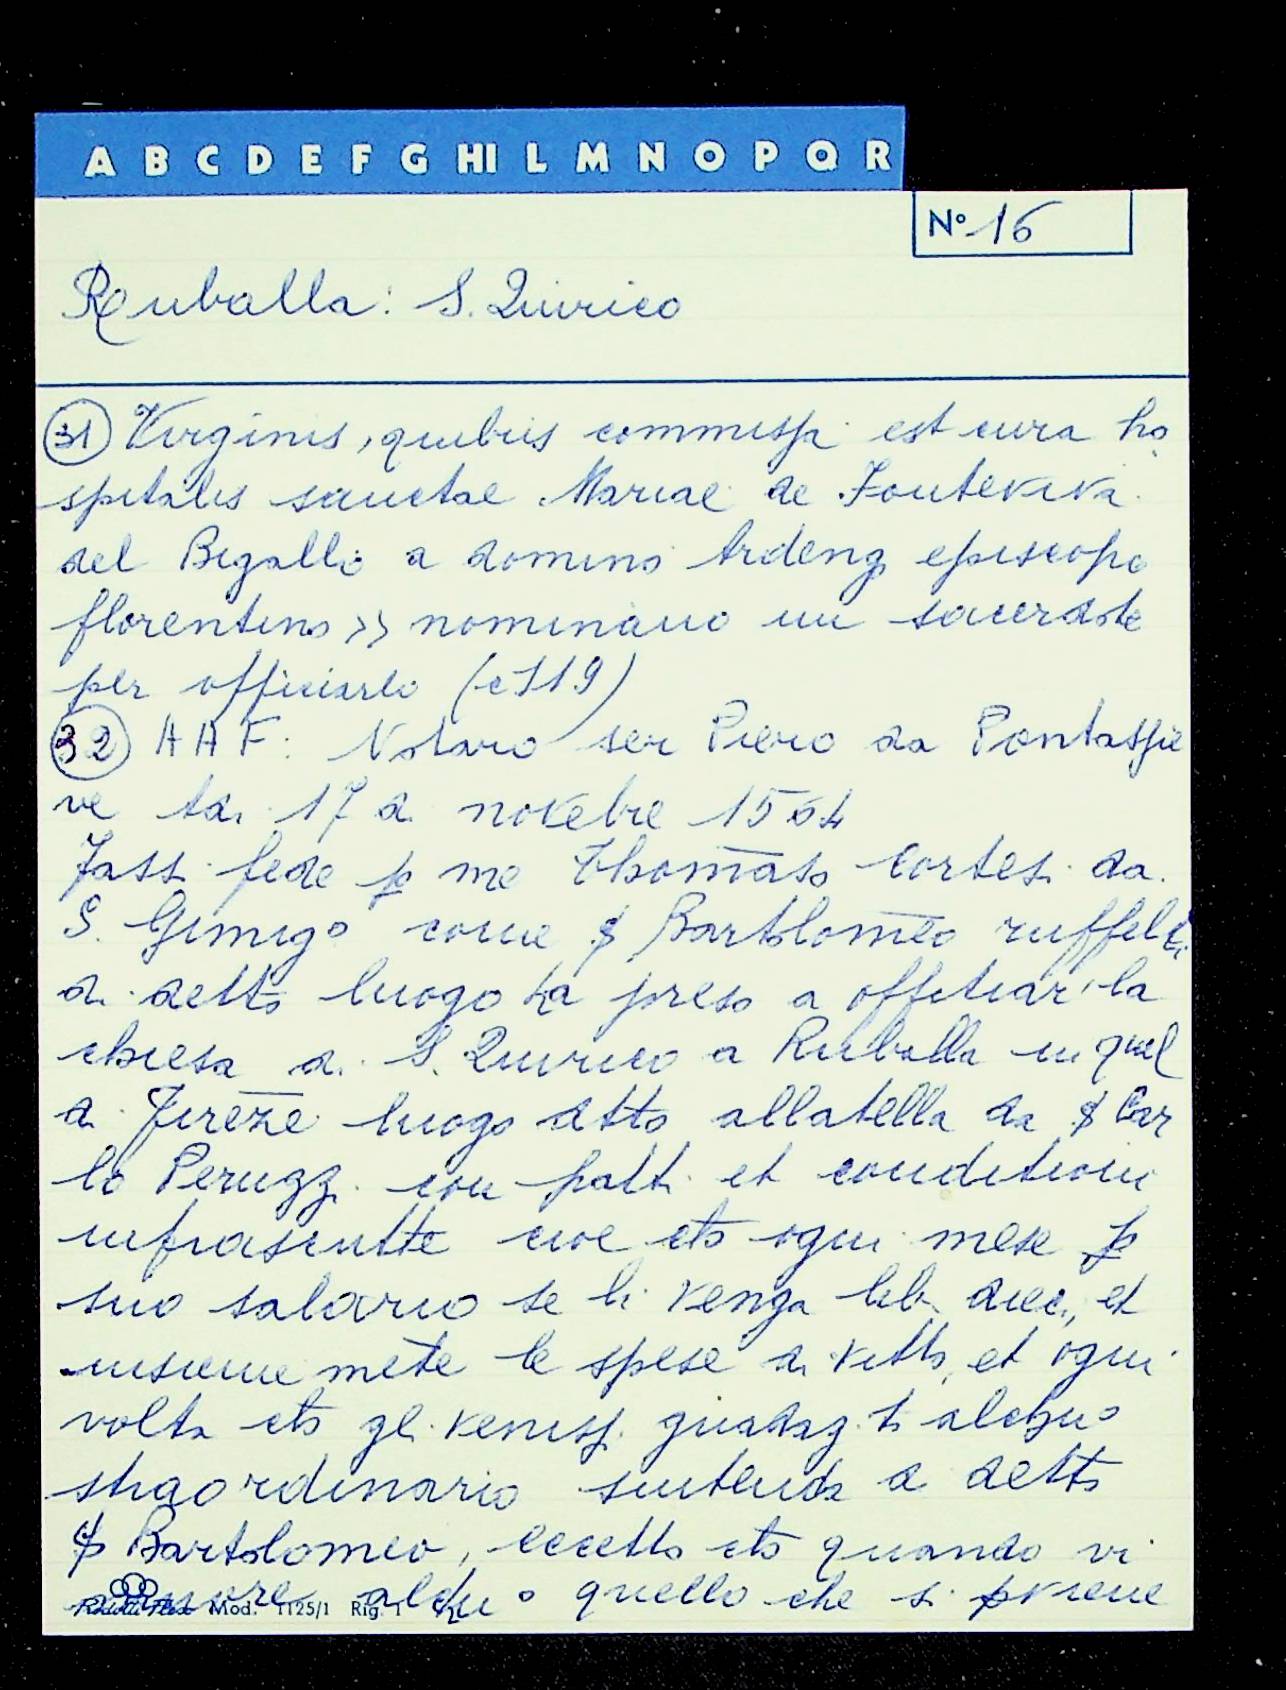 A B C D E F G HI L M N O P Q R
Nº 16
Ruballa: S. Quirico
31 Virginis, quibus commissa est cura ho
spitalis sanctae Mariae de Fonteviva
del Bigallo a domino Ardengo episcopo
florentino >> nominano un sacerdote
per officiarlo (c 119)
32 AAF: Notaro ser Piero da Pontassie
ve ta. 17 di novebre 1564
Fassi fede p me Thomaso Cortesi da
S. Gimigº come Bartolomeo ruffelli
di detto luogo ha preso a offitiar' la
chiesa di S. Quirico a Ruballa in quel
di Fireze luogo detto allatella da Car
lo Peruzzi con patti et conditioni
infrascritte cioe ogni mese p
suo salario se li venga lib. dieci, et
insieme mete le spese di vitto, et ogni
volta gli venissi alchuº
straordinario di detto
Bartolomeo, eccetto quando vi
alchuº quello che si
Mod. 1125/1 Rig. 1